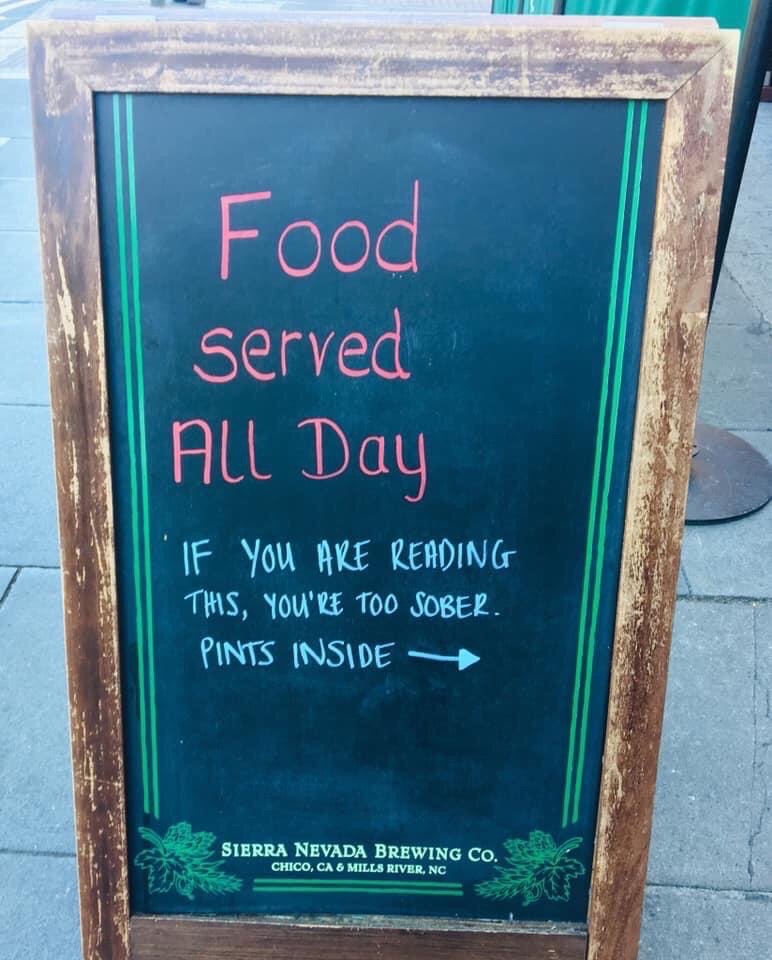 Food
served
All Day
IF YOU ARE READING
THIS, YOU'RE TOO SOBER.
PINTS INSIDE →
SIERRA NEVADA BREWING CO.
CHICO, CA & MILLS RIVER, NC